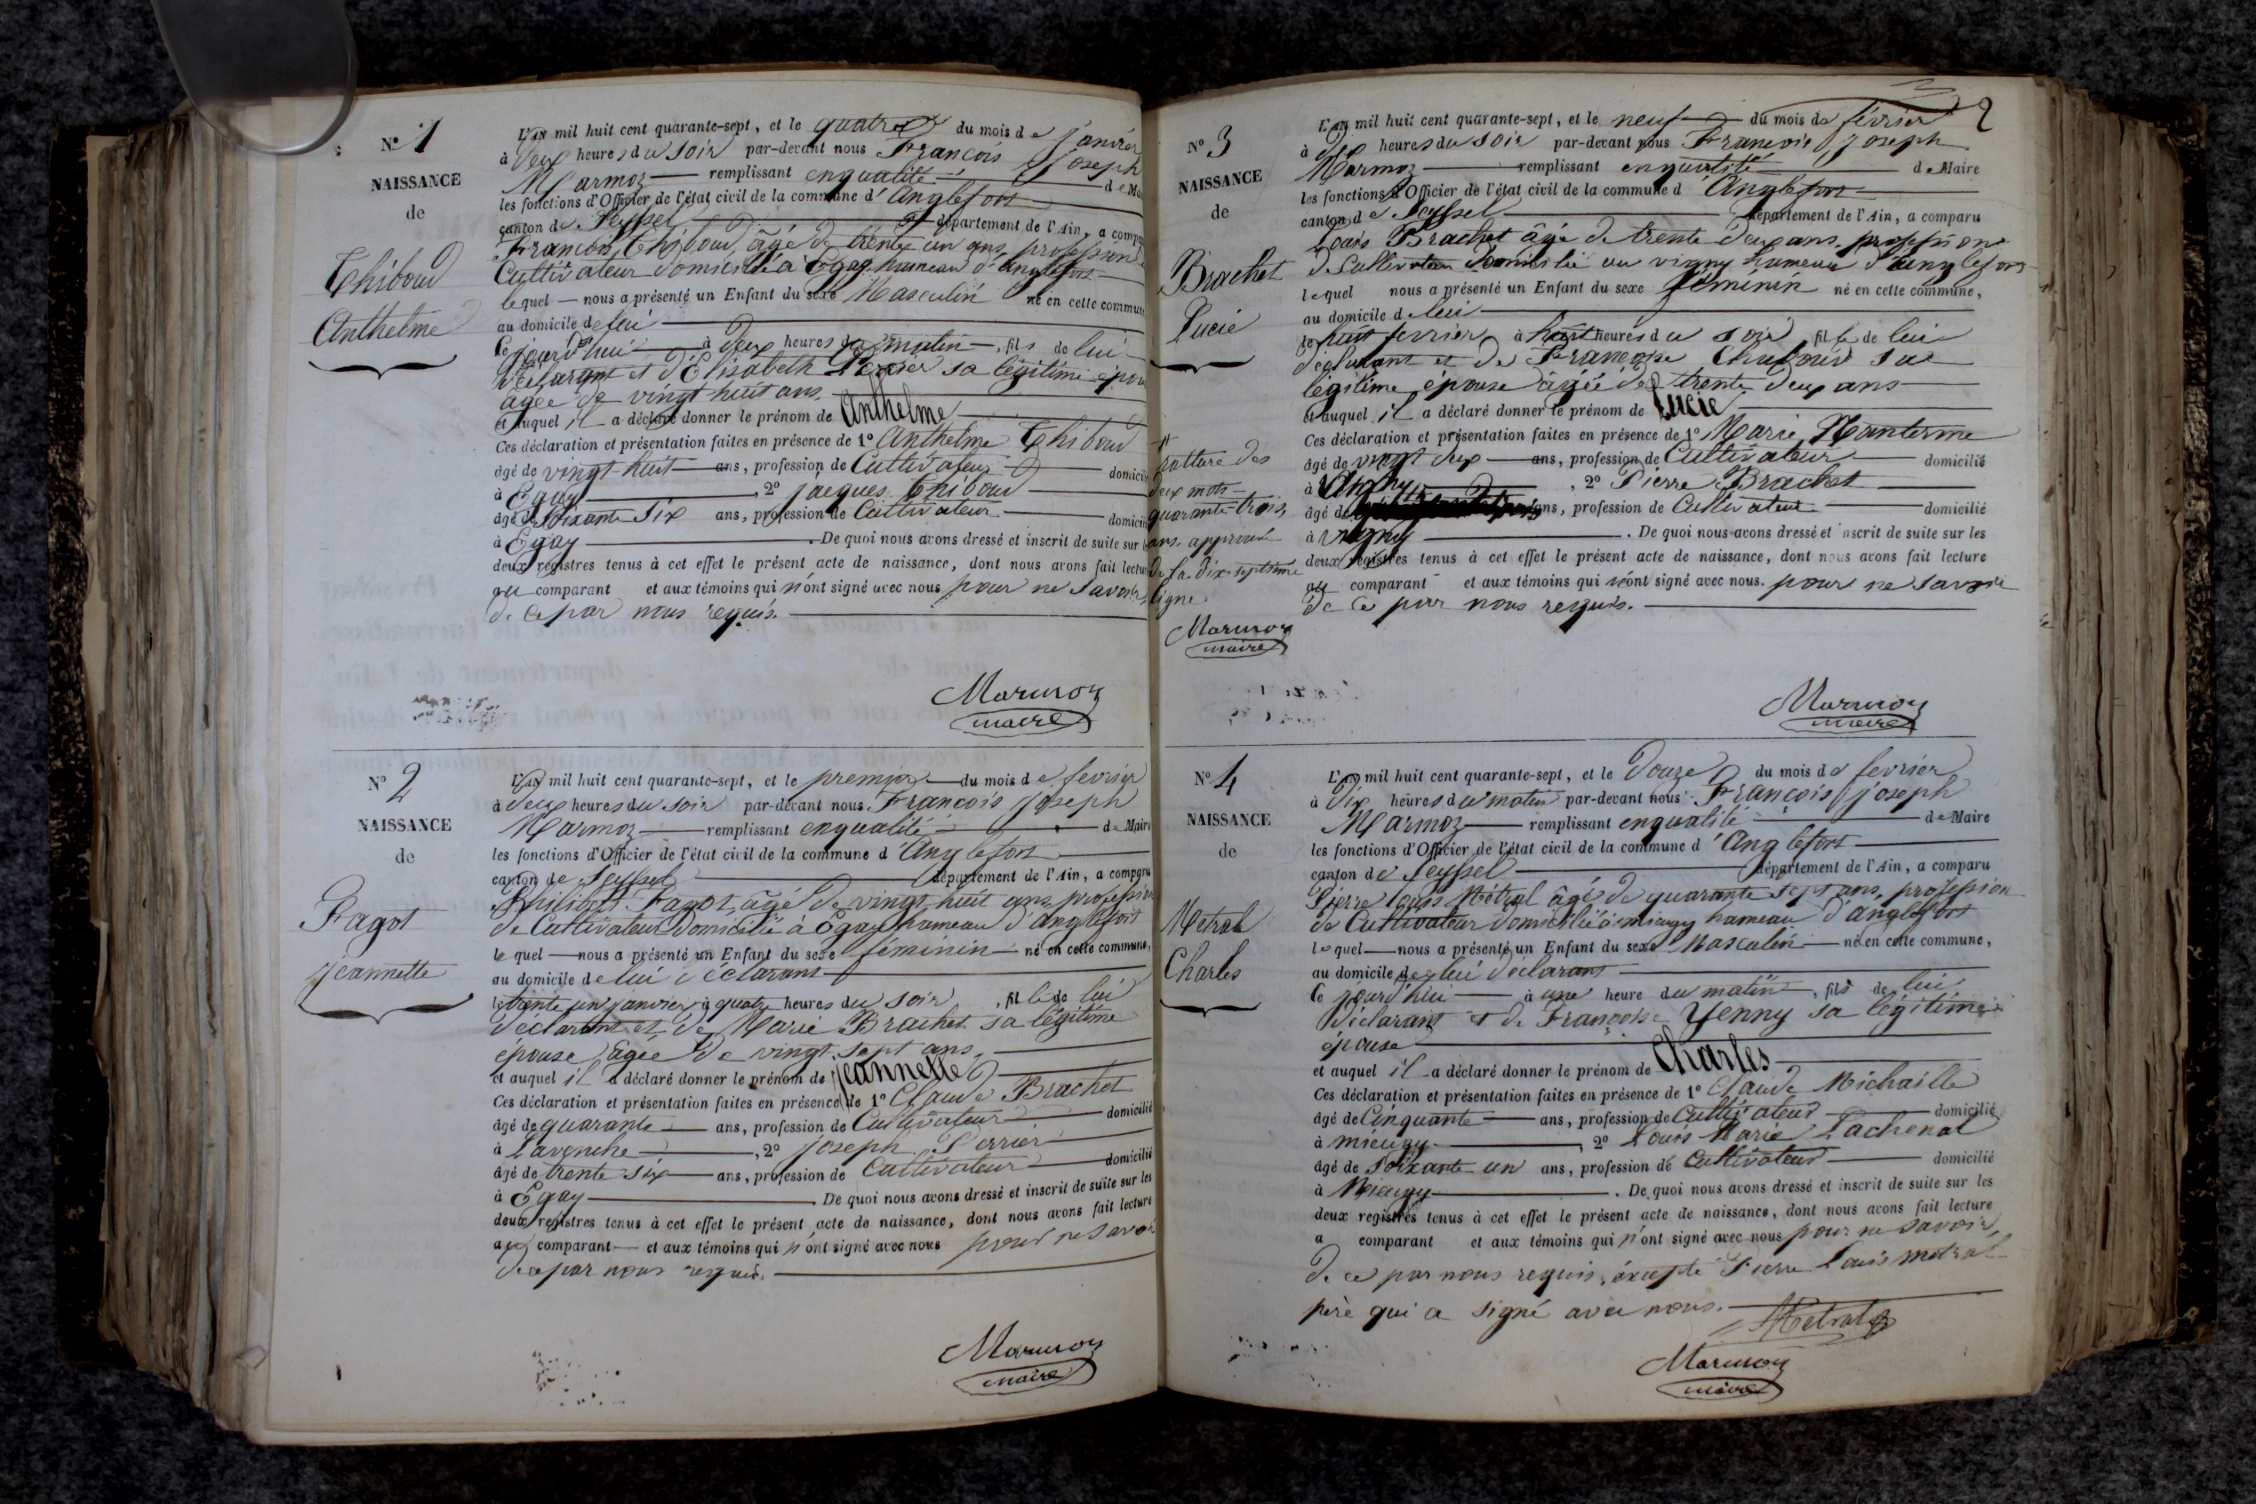 N° 1
NAISSANCE
de
Thiboud
Anthelme
L'an mil huit cent quarante-sept, et le quatre du mois de janvier
à deux heures du soir par-devant nous François Joseph
Marmoz remplissant en qualité de Mai
les fonctions d'Officier de l'état civil de la commune d'Anglefort
canton de Seyssel département de l'Ain, a compa
François Thiboud âgé de trente un ans, profession
Cultivateur domicilié à Egay hameau d'anglefort
lequel nous a présenté un Enfant du sexe Masculin né en cette commun
au domicile de lui
ce jourd'hui à deux heures du matin, fils de lui
déclarant et d'Elisabeth sa légitime épou
agée de vingt huit ans.
et auquel il a déclaré donner le prénom de Anthelme
Ces déclaration et présentation faites en présence de 1° Anthelme Thiboud
âgé de vingt-huit ans, profession de Cultivateur domicili
à Egay, 2° Jacques Thiboud
âgé de Soixante Six ans, profession de Cultivateur domicili
à Egay. De quoi nous avons dressé et inscrit de suite sur l
deux registres tenus à cet effet le présent acte de naissance, dont nous avons fait lectur
au comparant et aux témoins qui n'ont signé avec nous pour ne Savoir
de ce par nous requis.
Marmoz
maire
N° 2
NAISSANCE
de
Fagot
jeannette
L'an mil huit cent quarante-sept, et le premier du mois de fevrier
à deux heures du soir par-devant nous François Joseph
Marmoz remplissant en qualité de Maire
les fonctions d'Officier de l'état civil de la commune d'Anglefort
canton de Seyssel département de l'Ain, a comparu
Philibert Fagot âgé de vingt huit ans, profession
de Cultivateur domicilié à Egay hameau d'anglefort
lequel nous a présenté un Enfant du sexe féminin né en cette commune,
au domicile de lui déclarant
le trente un janvier à quatre heures du soir, fille de lui
déclarant et de Marie Brachet sa légitime
épouse agée de vingt sept ans,
et auquel il a déclaré donner le prénom de jeannette
Ces déclaration et présentation faites en présence de 1° Claude Brachet
âgé de quarante ans, profession de Cultivateur domicilié
à Lavenche, 2° Joseph Perrier
âgé de trente six ans, profession de Cultivateur domicilié
à Egay. De quoi nous avons dressé et inscrit de suite sur les
deux registres tenus à cet effet le présent acte de naissance, dont nous avons fait lecture
au comparant et aux témoins qui n'ont signé avec nous pour ne Savoir
de ce par nous requis.
Marmoz
maire
2
N° 3
NAISSANCE
de
Brachet
Lucie
rature des
deux mots
quarante-trois
ans. approuvé
de la dix-septième
ligne.
Marmoz
maire
L'an mil huit cent quarante-sept, et le neuf du mois de février
à heures du soir par-devant nous François Joseph
Marmoz remplissant en qualité de Maire
les fonctions d'Officier de l'état civil de la commune d'Anglefort
canton de Seyssel département de l'Ain, a comparu
Louis Brachet âgé de trente deux ans, profession
de Cultivateur domicilié au vigny hameau d'anglefort
lequel nous a présenté un Enfant du sexe féminin né en cette commune,
au domicile de lui
le huit fevrier à huit heures du soir, fille de lui
déclarant et de Françoise sa
légitime épouse âgée de trente deux ans
et auquel il a déclaré donner le prénom de Lucie
Ces déclaration et présentation faites en présence de 1° Marie
âgé de vingt ans, profession de Cultivateur domicilié
à, 2° Pierre Brachet
âgé de ans, profession de Cultivateur domicilié
à vigny. De quoi nous avons dressé et inscrit de suite sur les
deux registres tenus à cet effet le présent acte de naissance, dont nous avons fait lecture
au comparant et aux témoins qui n'ont signé avec nous pour ne Savoir
de ce par nous requis.
Marmoz
maire
N° 4
NAISSANCE
de
Metral
Charles
L'an mil huit cent quarante-sept, et le Douze du mois de fevrier
à dix heures du matin par-devant nous François Joseph
Marmoz remplissant en qualité de Maire
les fonctions d'Officier de l'état civil de la commune d'Anglefort
canton de Seyssel département de l'Ain, a comparu
Pierre Louis Métral âgé de quarante sept ans, profession
de Cultivateur domicilié à mieugy hameau d'anglefort
lequel nous a présenté un Enfant du sexe Masculin né en cette commune,
au domicile de lui déclarant
ce jourd'hui à une heure du matin, fils de lui
Déclarant et de Françoise Yenny sa légitime
épouse
et auquel il a déclaré donner le prénom de Charles
Ces déclaration et présentation faites en présence de 1° Claude Michaille
âgé de Cinquante ans, profession de Cultivateur domicilié
à mieugy, 2° Louis Marie Lachenal
âgé de Soixante un ans, profession de Cultivateur domicilié
à Mieugy. De quoi nous avons dressé et inscrit de suite sur les
deux registres tenus à cet effet le présent acte de naissance, dont nous avons fait lecture
a comparant et aux témoins qui n'ont signé avec nous pour ne Savoir
de ce par nous requis, excepté Pierre Louis metral
père qui a signé avec nous.
Metral
Marmoz
maire